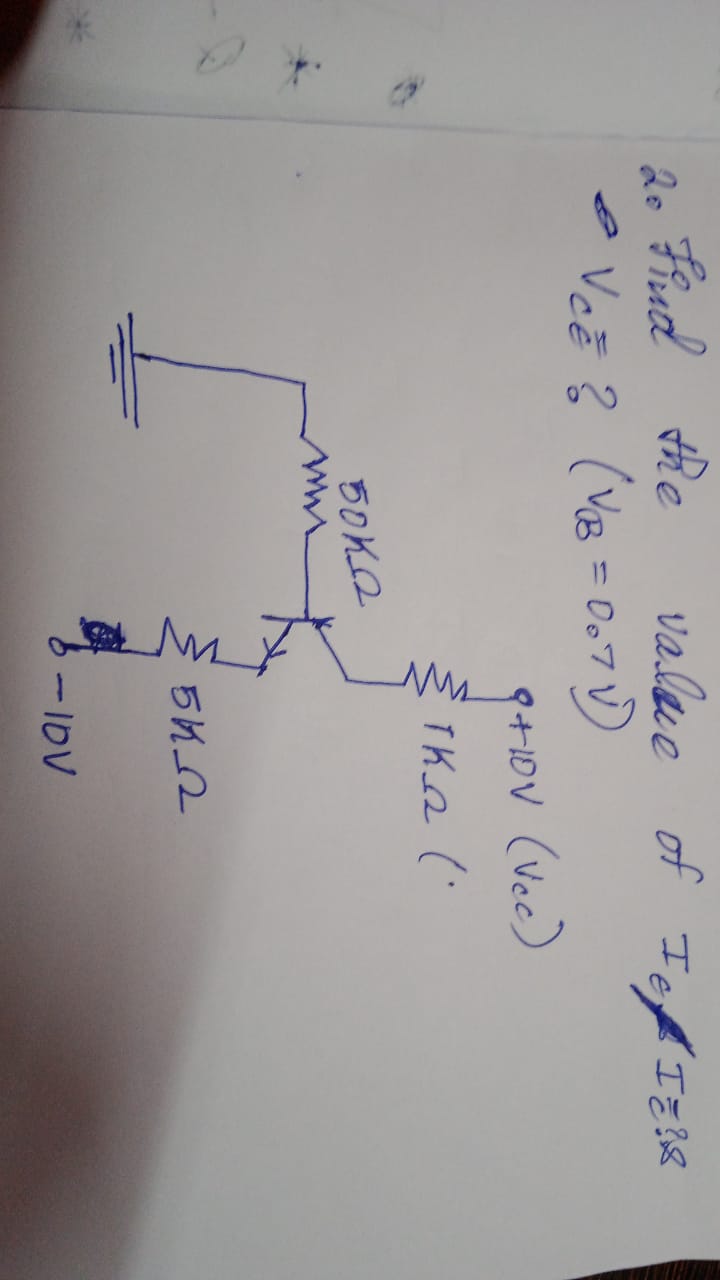 2. Find the value of Ie Ic=?
VCE=? (VB = 0.7V)
+10V (Vcc)
1KΩ (
50KΩ
5KΩ
-10V